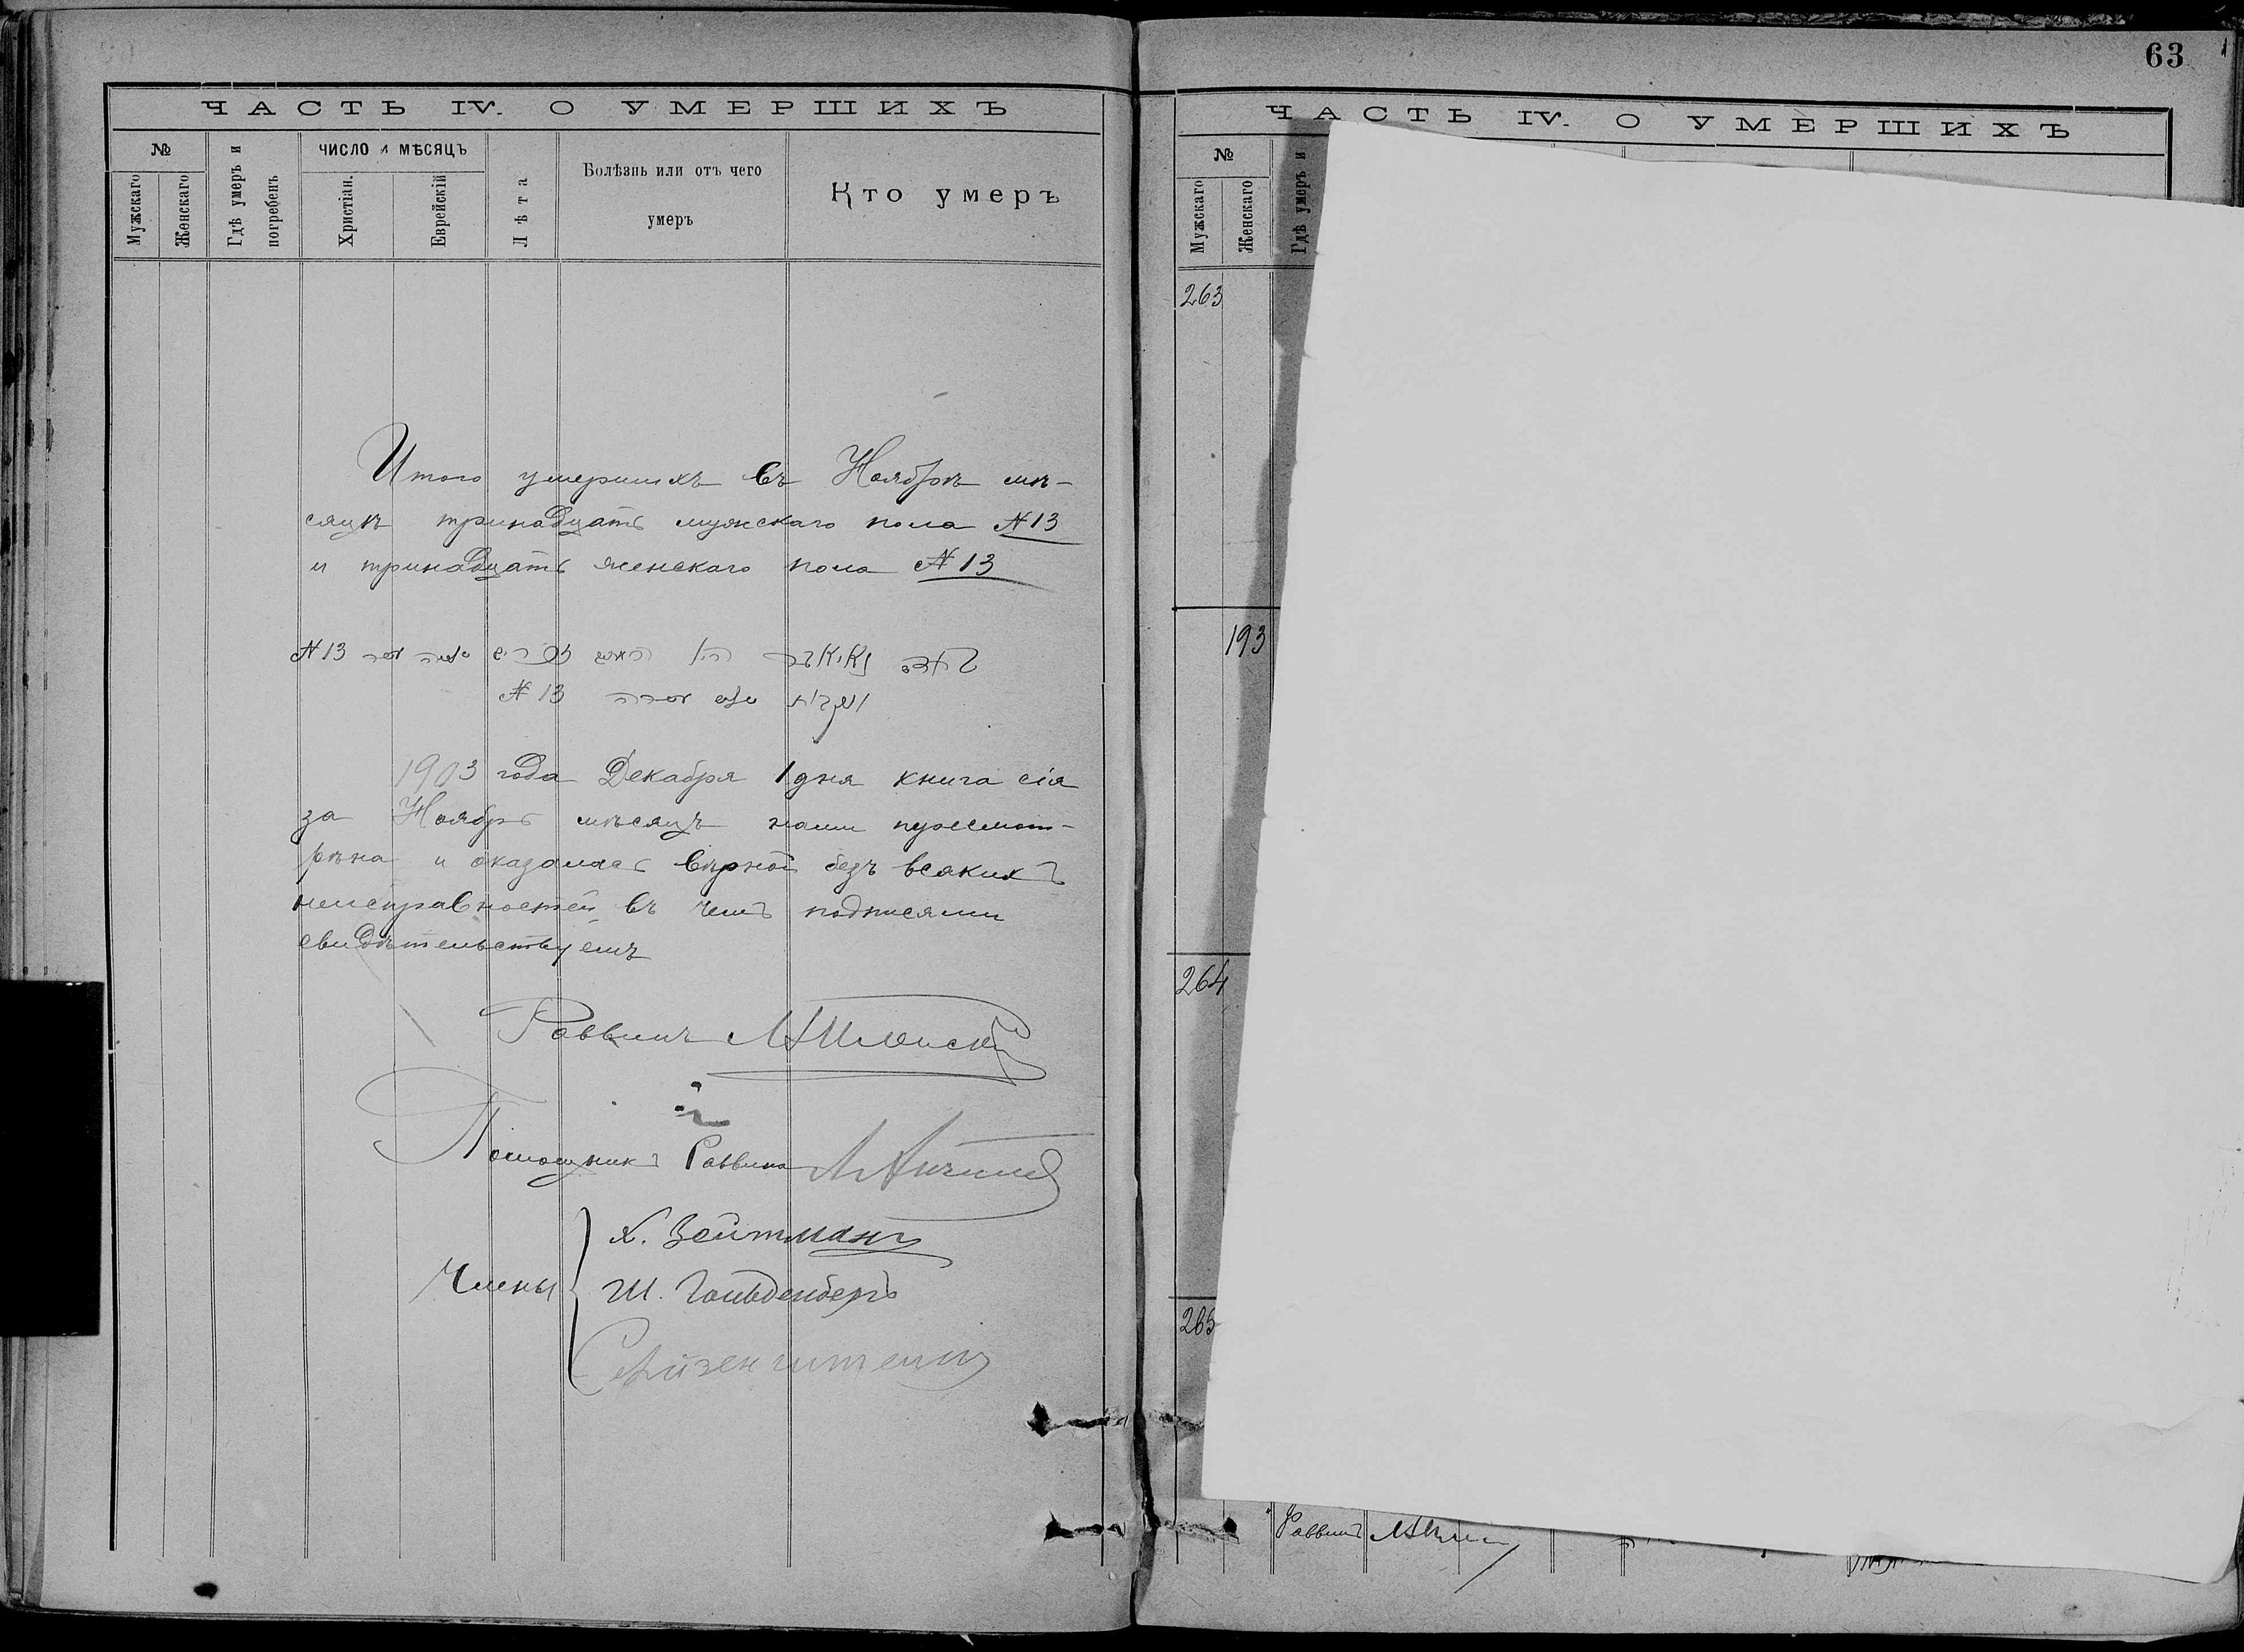 ЧАСТЬ IV. О УМЕРШИХЪ
№
Мужскаго
Женскаго
Гдѣ умеръ и погребенъ
ЧИСЛО и МѢСЯЦЪ
Христіан.
Еврейскій
Лѣта
Болѣзнь или отъ чего
умеръ
Кто умеръ
Итого умершихъ въ Ноябрѣ мѣ-
сяцѣ тринадцать мужскаго пола №13
и тринадцать женскаго пола №13
№13
№13
1903 года Декабря 1 дня книга сія
за Ноябрь мѣсяцъ нами пересмот-
рѣна и оказалась вѣрной безъ всякихъ
неисправностей въ чемъ подписями
свидѣтельствуемъ
Раввинъ
Помощникъ Раввина
Члены
Х. Вейтманъ
Ш. Гольденбергъ
Айзенштейнъ
63
ЧАСТЬ IV. О УМЕРШИХЪ
№
Мужскаго
Женскаго
Гдѣ умеръ и
263
193
264
265
Раввинъ